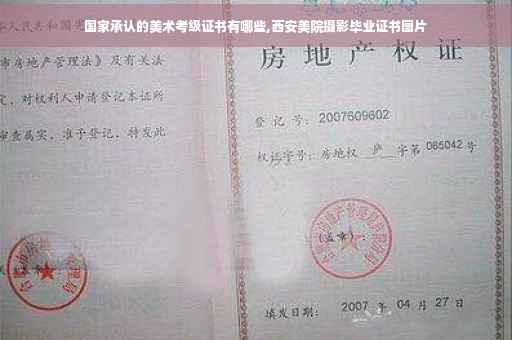 国家承认的美术考级证书有哪些,西安美院摄影毕业证书图片
华人民共和国宪
市房地产管理法》及有关法
定，对权利人申请登记本证所
审查属实，准予登记，特发此
房地产权证
登记号：2007609602
权证字号：房地权 庐 字第 065042 号
(盖章)：
填发日期：2007 年 04 月 27 日